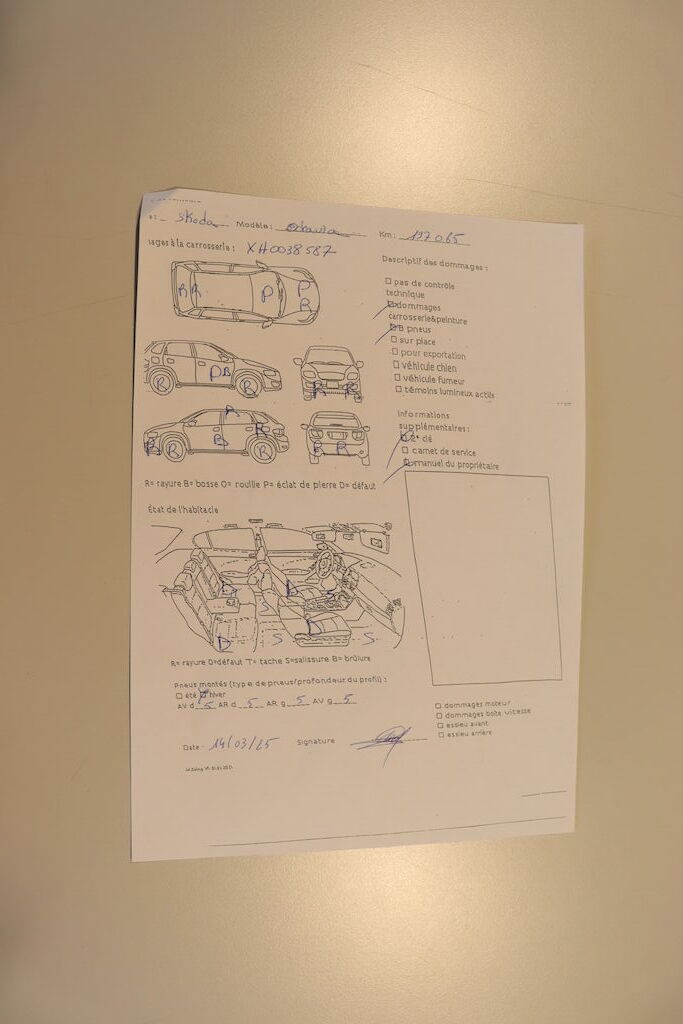 Skoda Modèle: Octavia Km: 197 065
ages à la carrosserie: XH0038587
Descriptif des dommages:
pas de contrôle
technique
dommages
carrosserie&peinture
8 pneus
sur place
pour exportation
véhicule chien
véhicule fumeur
témoins lumineux actifs
Informations
supplémentaires:
2e clé
carnet de service
manuel du propriétaire
R R P P
R
R PB R
R R
B
B R
B R R R
R
R= rayure B= bosse O= rouille P= éclat de pierre D= défaut
État de l'habitacle
S
D S S
R= rayure D=défaut T= tache S=salissure B= brûlure
Pneus montés (type de pneus/profondeur du profil):
été hiver
AV d 5 AR d 5 AR g 5 AV g 5
dommages moteur
dommages boîte vitesse
essieu avant
essieu arrière
Date: 14/03/25 Signature